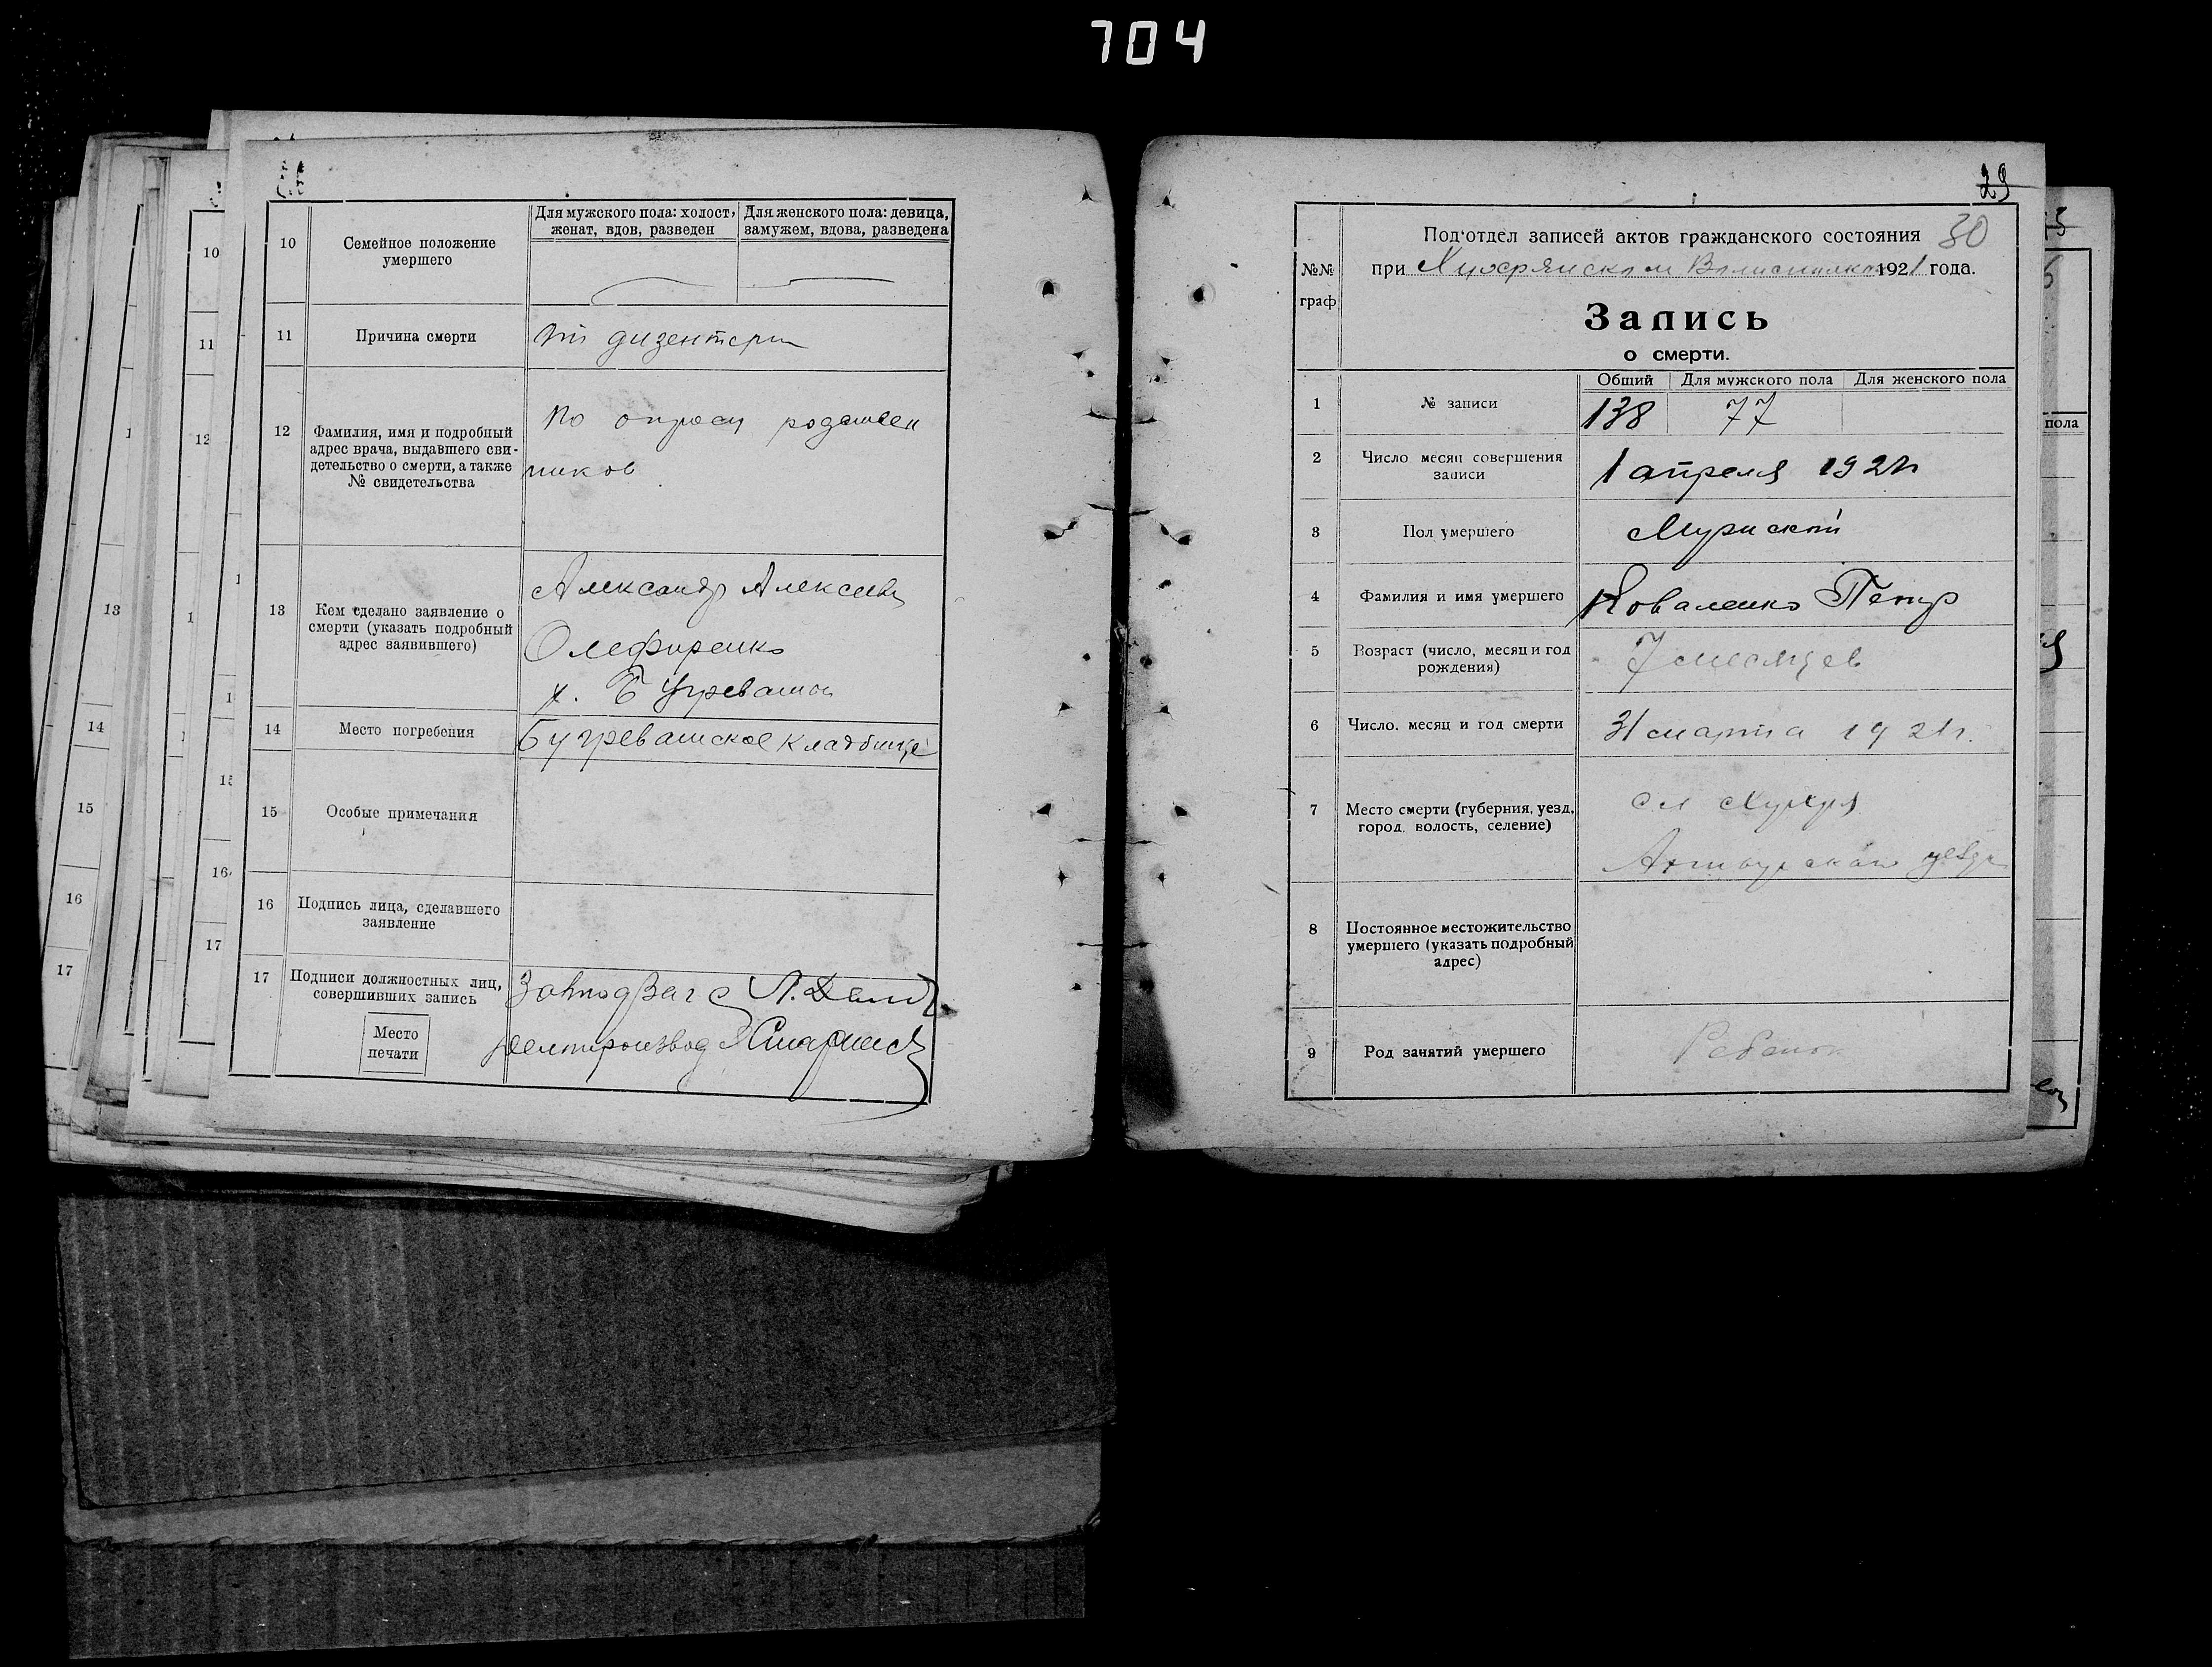 704
10
Семейное положение
умершего
Для мужского пола: холост,
женат, вдов, разведен
Для женского пола: девица,
замужем, вдова, разведена
11
Причина смерти
От дизентери
12
Фамилия, имя и подробный
адрес врача, выдавшего сви-
детельство о смерти, а также
№ свидетельства
По опросу родствен
ников
13
Кем сделано заявление о
смерти (указать подробный
адрес заявившего)
Александр Алексеев
Олефиренко
х.
14
Место погребения
Бугреватское кладбище
15
Особые примечания
16
Подпись лица, сделавшего
заявление
17
Подписи должностных лиц,
совершивших запись
Место
печати
Завподзагс Л.
Делопроизвод
29
30
№№
граф
Под'отдел записей актов гражданского состояния
при Хухрянском 1921 года.
Запись
о смерти.
1
№ записи
Общий
Для мужского пола
Для женского пола
138
77
2
Число месяц совершения
записи
1 апреля 1921 г
3
Пол умершего
Мужской
4
Фамилия и имя умершего
Коваленко Петр
5
Возраст (число, месяц и год
рождения)
7 месяцев
6
Число, месяц и год смерти
31 марта 1921 г.
7
Место смерти (губерния, уезд,
город, волость, селение)
сл Хухря
Ахтырского уезда
8
Постоянное местожительство
умершего (указать подробный
адрес)
9
Род занятий умершего
Ребенок
10
11
12
13
14
15
16
17
13
14
15
16
17
пола